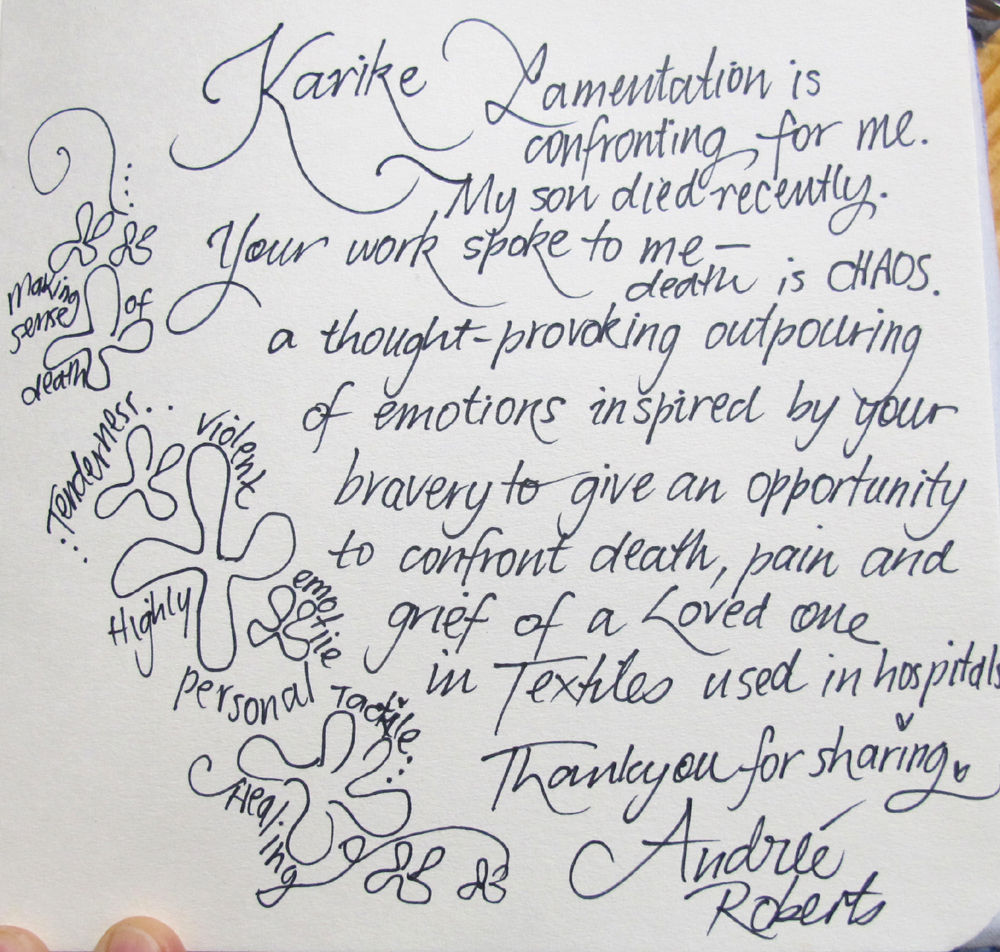 Karike Lamentation is
confronting for me.
My son died recently.
Your work spoke to me—
death is CHAOS.
a thought-provoking outpouring
of emotions inspired by your
bravery to give an opportunity
to confront death, pain and
grief of a Loved one
in Textiles used in hospitals
Thankyou for sharing
Andreé
Roberts
making
sense of
death
Tenderness...
Violent
Highly
emotive
personal
Tactile...
Healing